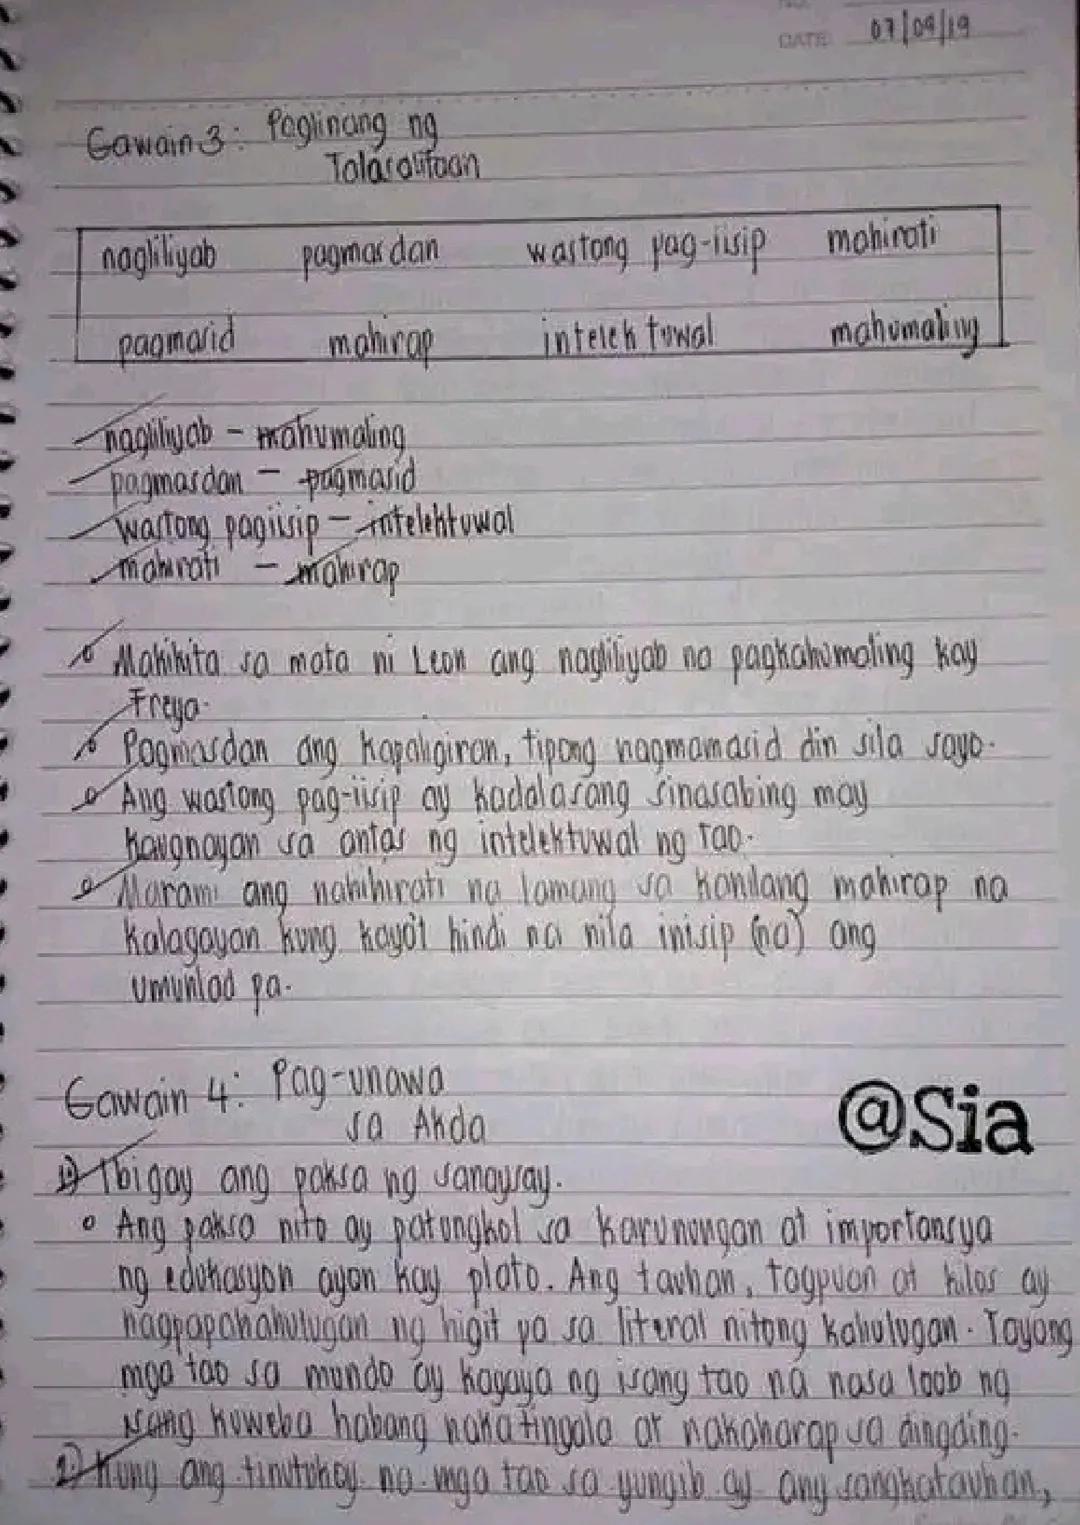 NO.
DATE 07/09/19
Gawain 3: Paglinang ng
Talasalitaan
nagliliyab pagmasdan wastong pag-iisip mahirati
pagmasid mahirap intelektuwal mahumaling
nagliliyab - mahumaling
pagmasdan - pagmasid
wastong pagiisip - intelektuwal
mahirati - mahirap
Makikita sa mata ni Leon ang nagliliyab na pagkahumaling kay
Freya.
Pagmasdan ang kapaligiran, tipong nagmamasid din sila sayo.
Ang wastong pag-iisip ay kadalasang sinasabing may
kaugnayan sa antas ng intelektuwal ng tao.
Marami ang nahihirati na lamang sa kanilang mahirap na
kalagayan kung kaya't hindi na nila inisip (na) ang
umunlad pa.
Gawain 4: Pag-unawa
sa Akda
@Sia
1.) Ibigay ang paksa ng sanaysay.
Ang paksa nito ay patungkol sa karunungan at importansya
ng edukasyon ayon kay plato. Ang tauhan, tagpuan at kilos ay
nagpapakahulugan ng higit pa sa literal nitong kahulugan. Tayong
mga tao sa mundo ay kagaya ng isang tao na nasa loob ng
isang kuweba habang nakatingala at nakaharap sa dingding.
2.) Kung ang tinutukoy na mga tao sa yungib ay ang sangkatauhan,